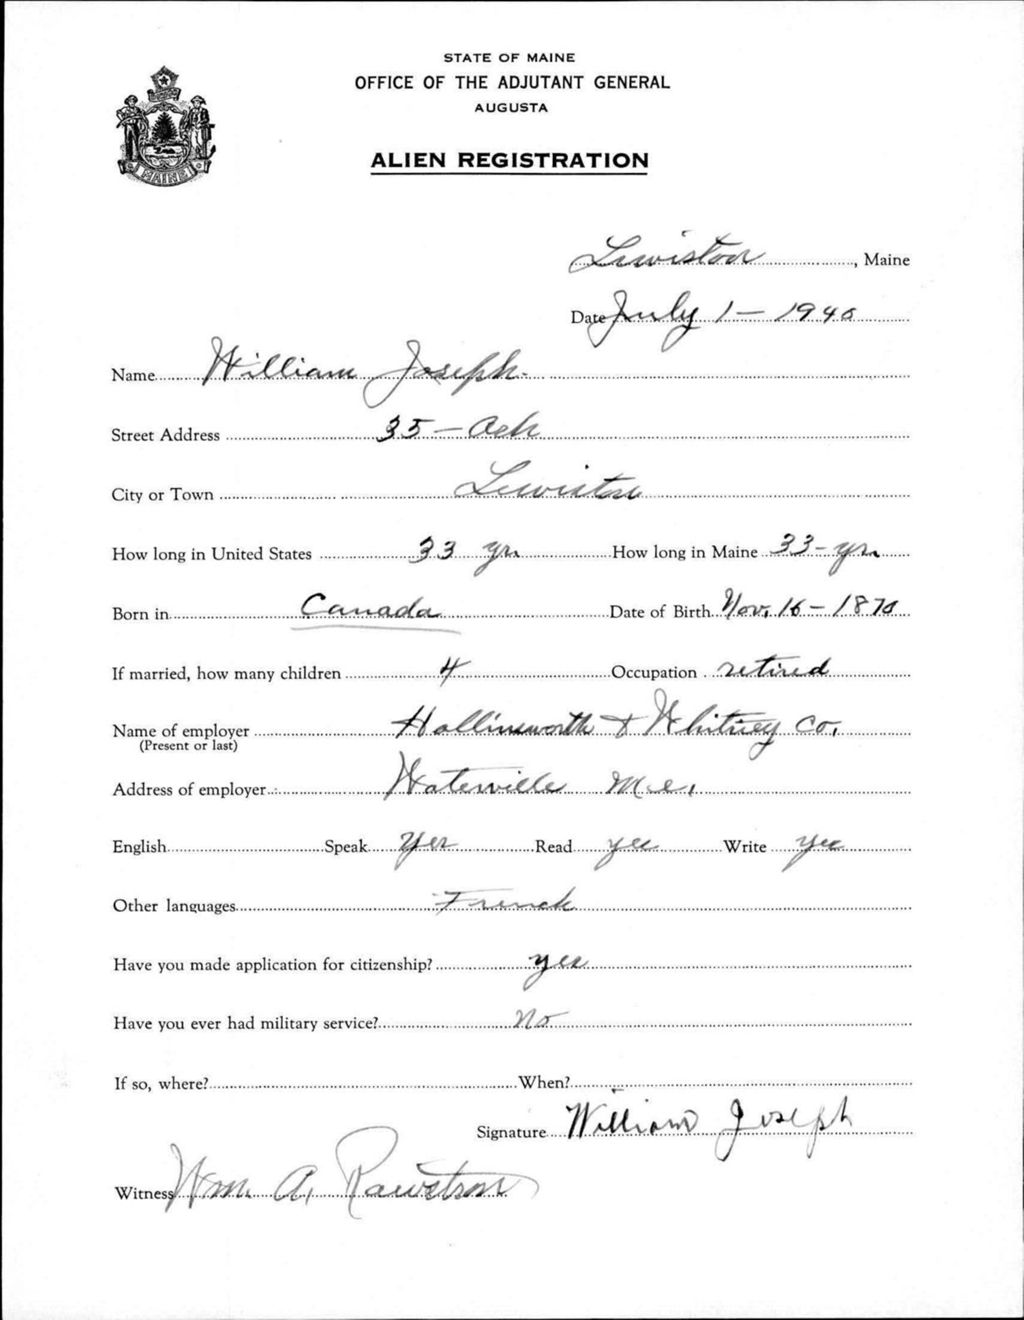 STATE OF MAINE
OFFICE OF THE ADJUTANT GENERAL
AUGUSTA
ALIEN REGISTRATION
MAINE
Lewiston, Maine
Date July 1 - 1940
Name William Joseph
Street Address 35 - Ash
City or Town Lewiston
How long in United States 33 yrs How long in Maine 33 - yrs
Born in Canada Date of Birth Nov. 16 - 1870
If married, how many children 4 Occupation retired
Name of employer Hollinsworth & Whitney Co.
(Present or last)
Address of employer Waterville Me.
English Speak Yes Read yes Write yes
Other languages French
Have you made application for citizenship? yes
Have you ever had military service? No
If so, where? When?
Signature William Joseph
Witness Wm. A. Rawstron